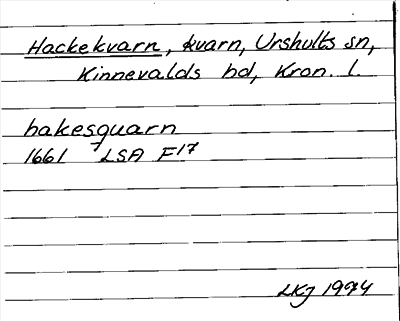 Hackekvarn, kvarn, Urshults sn,
Kinnevalds hd, Kron. l.
hakesquarn
1661 LSA F17
LKJ 1974